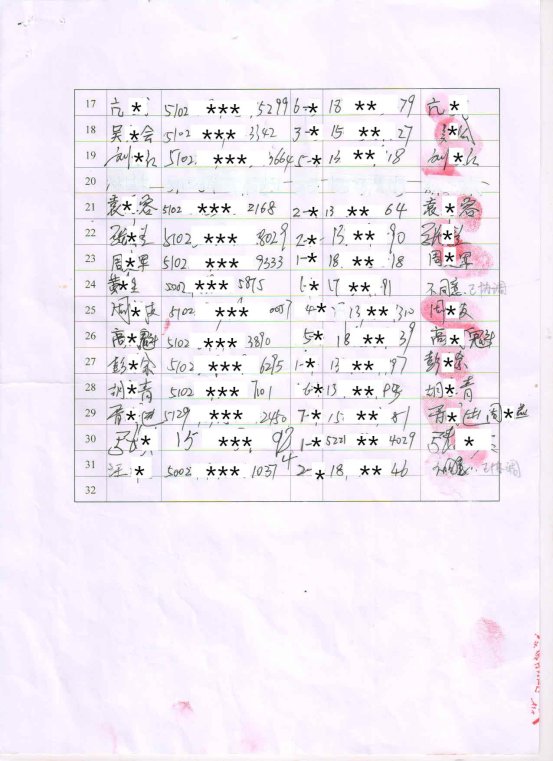 17 亢* 5102 *** 5299 6-* 18 ** 79 亢*
18 吴*会 5102 *** 3342 3-* 15 ** 27
19 刘* 5102 *** 3664 5-* 13 ** 18 刘*
20
21 袁*容 5102 *** 2168 2-* 13 ** 64 袁*容
22 张* 5102 *** 8029 2-* 13 ** 90 张*
23 周*军 5102 *** 9333 1-* 18 ** 18 周*军
24 黄* 5002 *** 5875 * 17 ** 91 不同意 已协调
25 周*友 5102 *** 0037 4-* 13 ** 310 周*友
26 高*魁 5102 *** 3890 5-* 18 ** 39 高*魁
27 彭* 5102 *** 6295 1-* 13 ** 97 彭*
28 胡*青 5102 *** 7101 6-* 13 ** 胡*青
29 * 5129 *** 2450 7-* 15 ** 81 * 周*
30 张* 15 *** 1-* 5221 ** 4029 张*
31 汪* 5002 *** 1037 2-* 18 ** 46 不同意 已协调
32